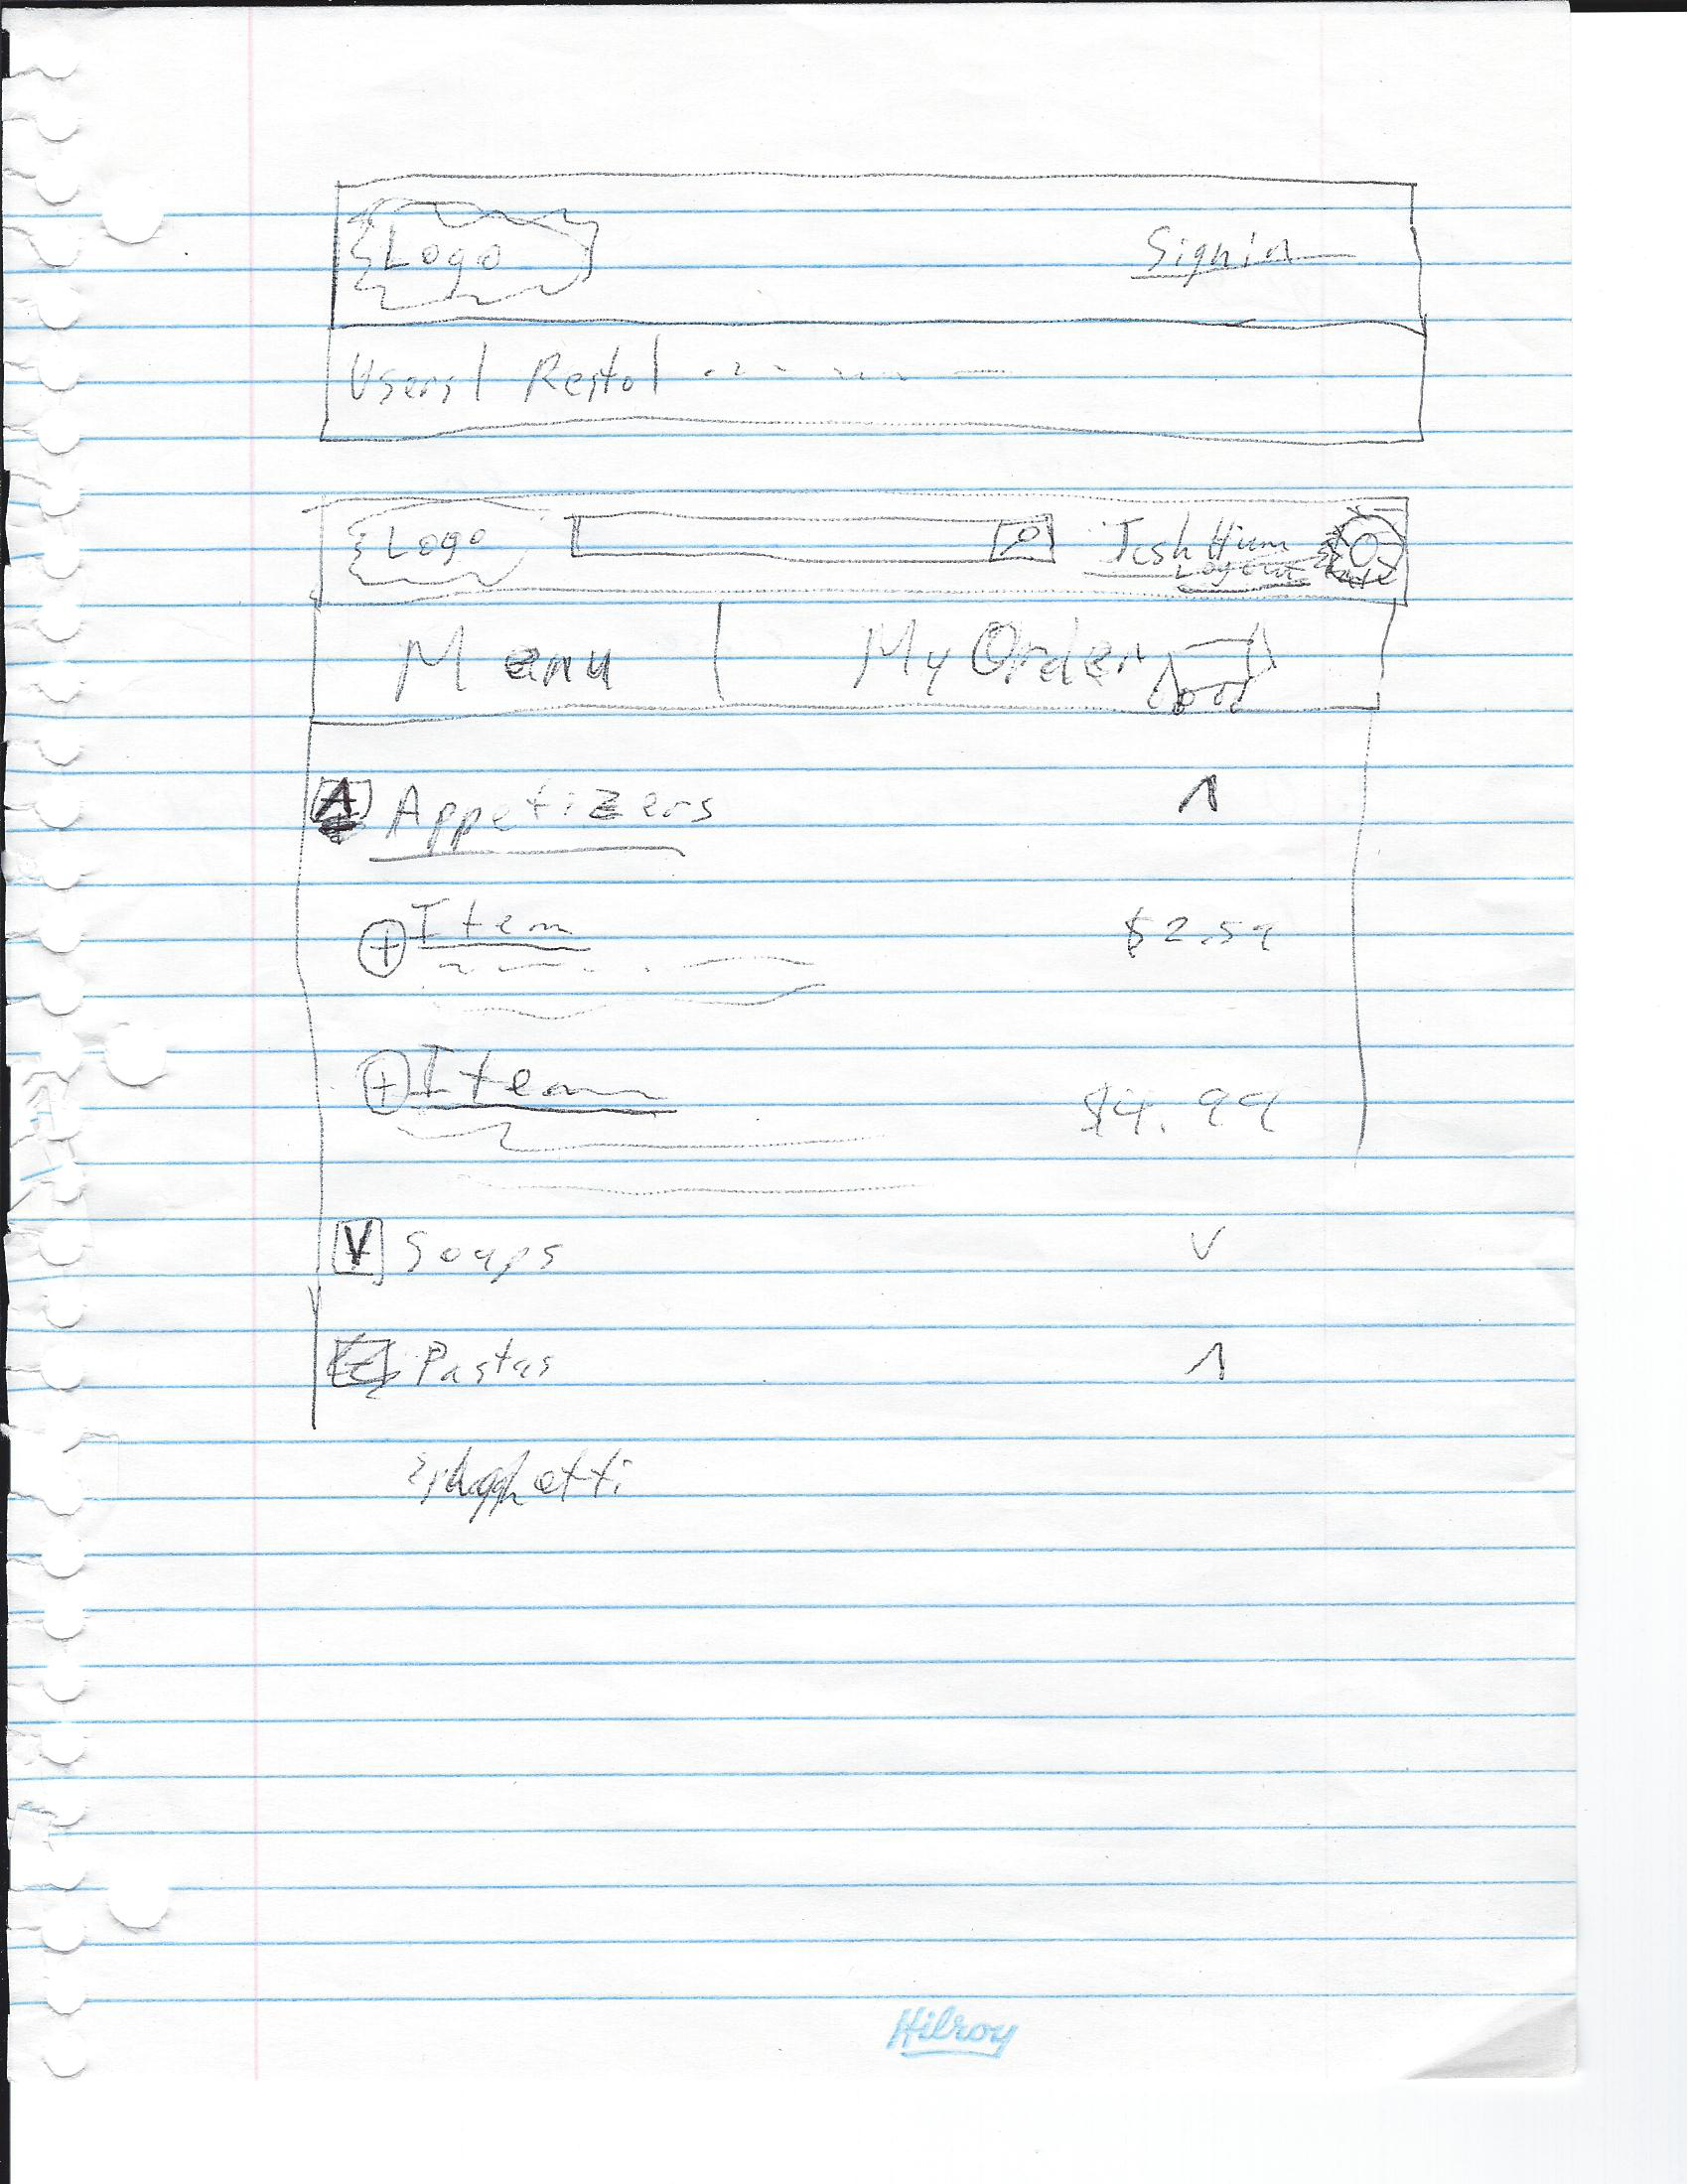 Logo Signin
Users | Resto |
Logo Josh Hum
Logout
Menu | My Order
Appetizers
+ Item $2.59
+ Item $4.99
Soups
Pastas
Hilroy